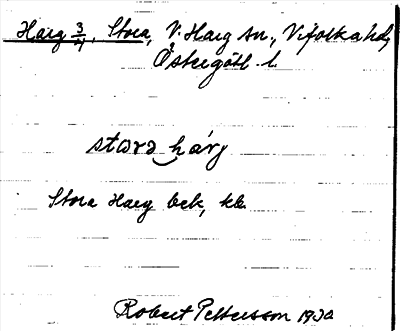 Harg 3/4, Stora, V. Harg sn., Vifolka hd,
Östergötl. l.
stora hárj
Stora Harg bek, kb.
Robert Pettersson 1930